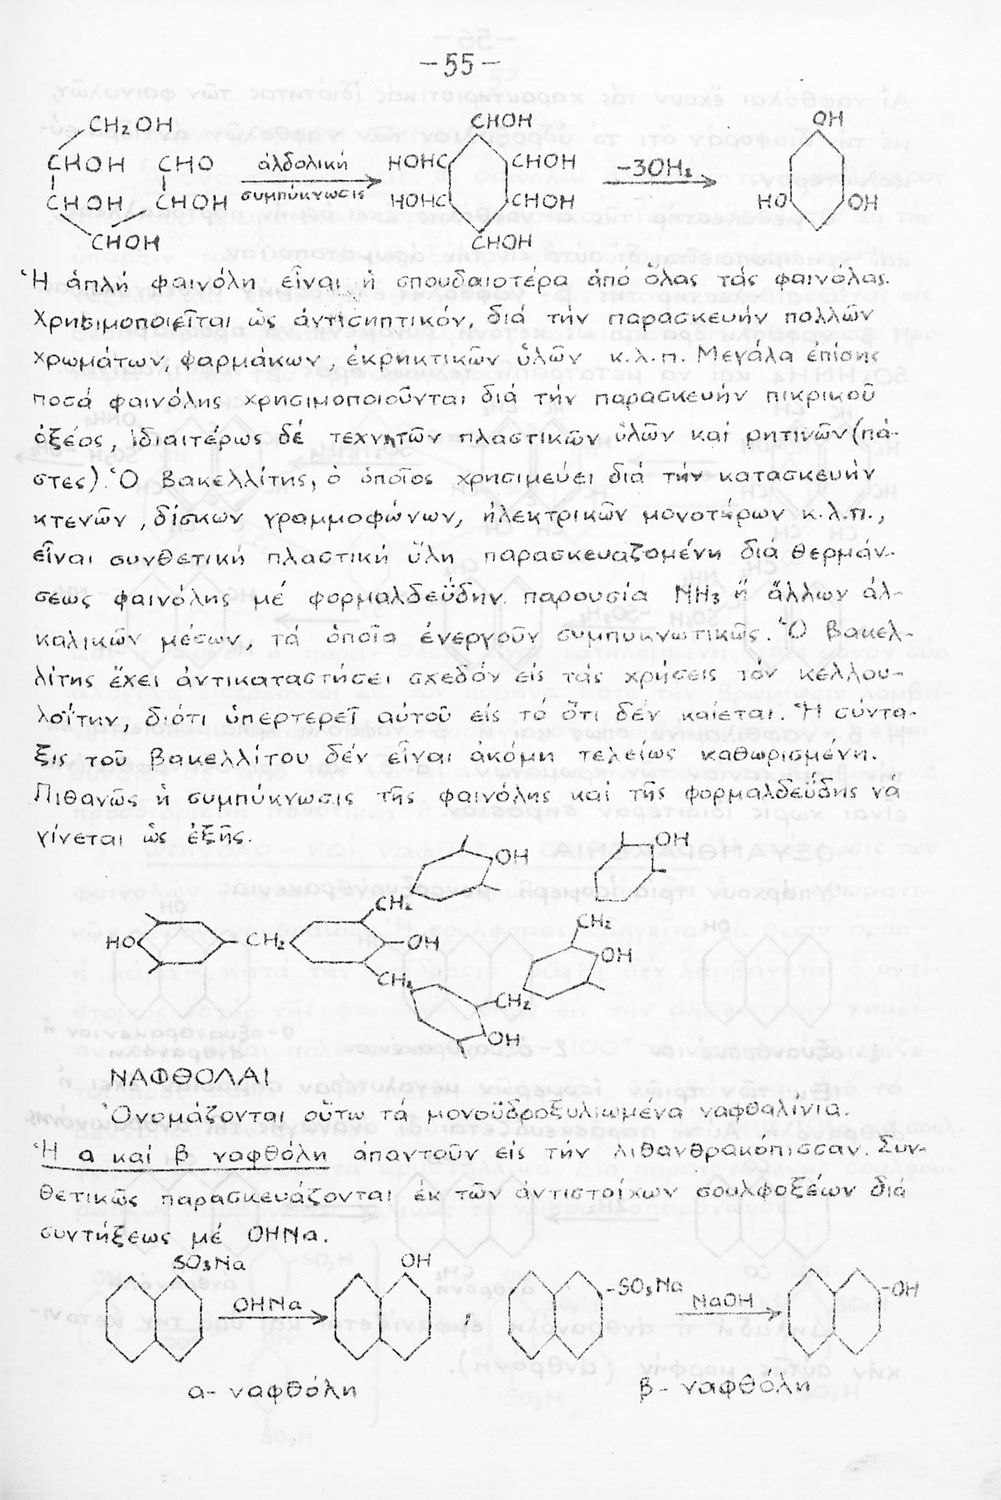 -55-
CH₂OH
CHOH CHO
CHOH CHOH
CHOH
ἀλδολική
συμπύκνωσις
CHOH
HOHC CHOH
HOHC CHOH
CHOH
-3OH₂
OH
HO OH
Ἡ ἁπλή φαινόλη εἶναι ἡ σπουδαιοτέρα ἀπό ὅλας τάς φαινόλας.
Χρησιμοποιεῖται ὡς ἀντισηπτικόν, διά τήν παρασκευήν πολλῶν
χρωμάτων, φαρμάκων, ἐκρηκτικῶν ὑλῶν κ.λ.π. Μεγάλα ἐπίσης
ποσά φαινόλης χρησιμοποιοῦνται διά τήν παρασκευήν πικρικοῦ
ὀξέος, ἰδιαιτέρως δέ τεχνητῶν πλαστικῶν ὑλῶν καί ρητινῶν (πά-
στες). Ὁ βακελλίτης, ὁ ὁποῖος χρησιμεύει διά τήν κατασκευήν
κτενῶν, δίσκων γραμμοφώνων, ἠλεκτρικῶν μονοτήρων κ.λ.π.,
εἶναι συνθετική πλαστική ὕλη παρασκευαζομένη διά θερμάν-
σεως φαινόλης μέ φορμαλδεΰδην παρουσία NH₃ ἤ ἄλλων ἀλ-
καλικῶν μέσων, τά ὁποῖα ἐνεργοῦν συμπυκνωτικῶς. Ὁ βακελ-
λίτης ἔχει ἀντικαταστήσει σχεδόν εἰς τάς χρήσεις τόν κελλου-
λοΐτην, διότι ὑπερτερεῖ αὐτοῦ εἰς τό ὅτι δέν καίεται. Ἡ σύντα-
ξις τοῦ βακελλίτου δέν εἶναι ἀκόμη τελείως καθωρισμένη.
Πιθανῶς ἡ συμπύκνωσις τῆς φαινόλης καί τῆς φορμαλδεΰδης νά
γίνεται ὡς ἑξῆς.
OH OH
CH₂ CH₂
HO CH₂ OH OH
CH₂ CH₂
OH
ΝΑΦΘΟΛΑΙ
Ὀνομάζονται οὕτω τά μονοϋδροξυλιωμένα ναφθαλίνια.
Ἡ α καί β ναφθόλη ἀπαντοῦν εἰς τήν λιθανθρακόπισσαν. Συν-
θετικῶς παρασκευάζονται ἐκ τῶν ἀντιστοίχων σουλφοξέων διά
συντήξεως μέ OHNa.
SO₃Na OH
OHNa ; -SO₃Na NaOH -OH
α- ναφθόλη β- ναφθόλη